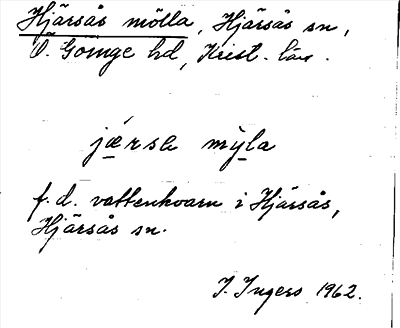 Hjärsås mölla, Hjärsås sn,
Ö. Göinge hd, Krist. län.
jærsa mỳla
f.d. vattenkvarn i Hjärsås,
Hjärsås sn.
I. Ingers 1962.